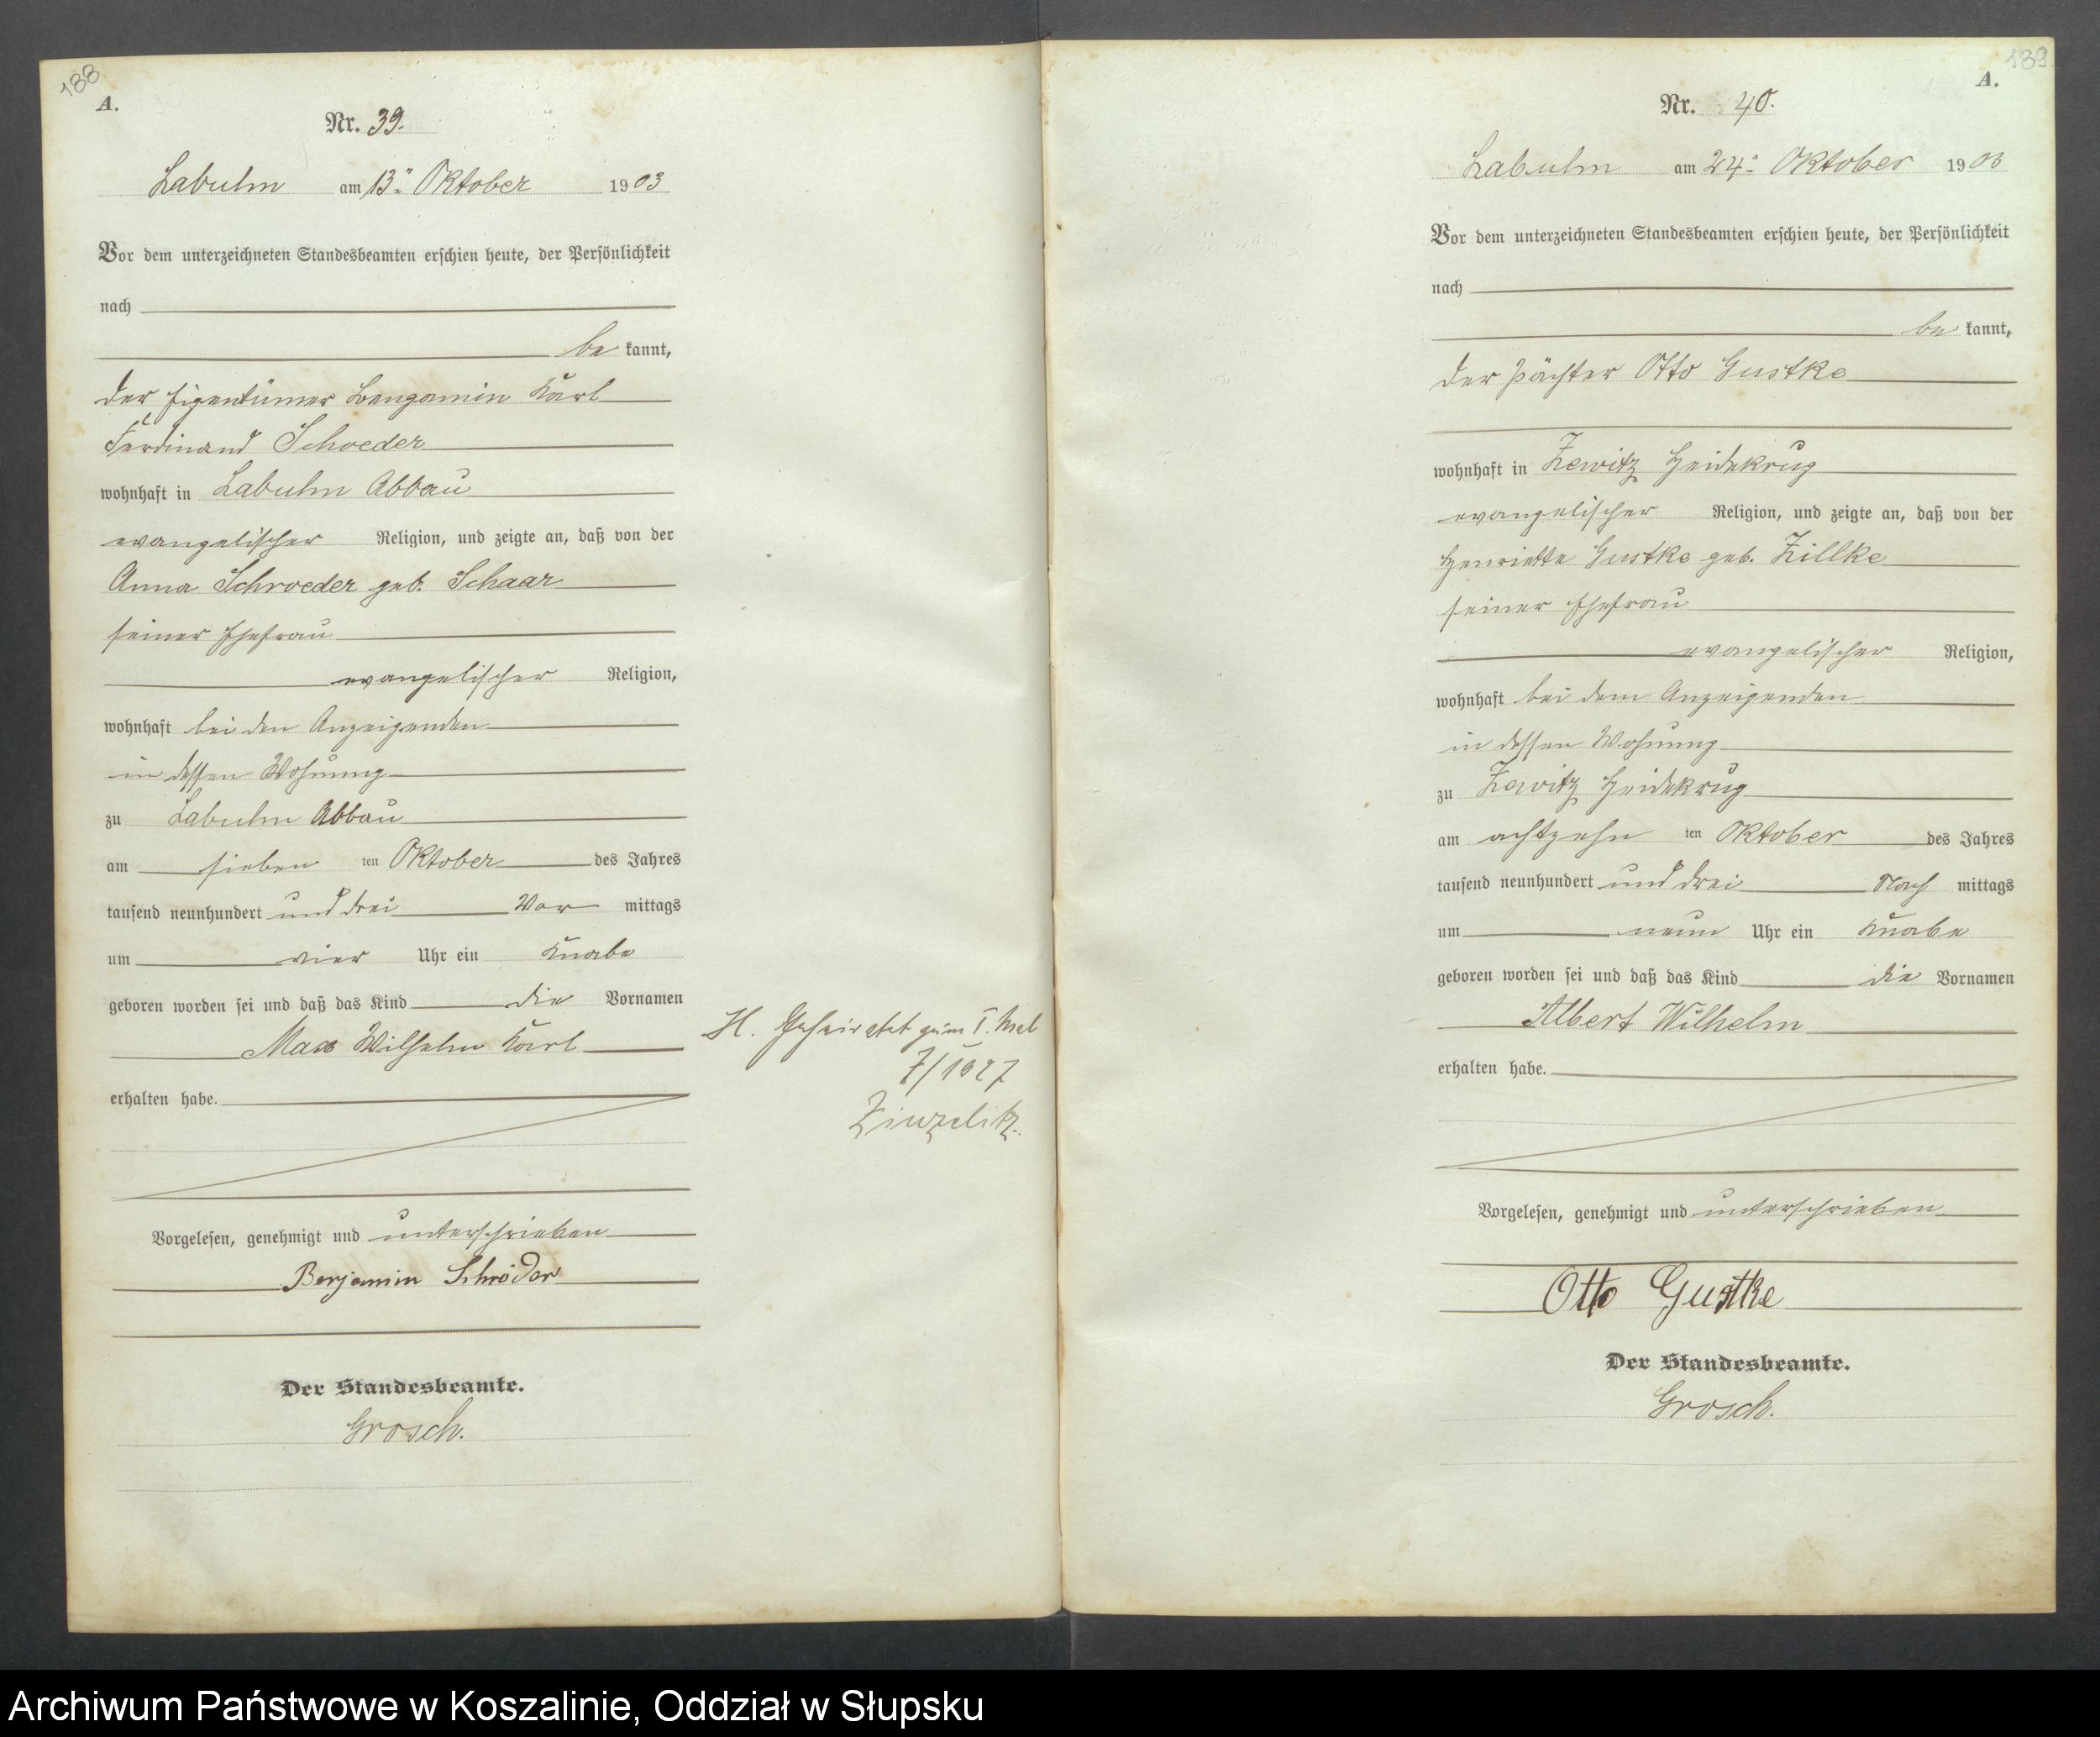 188
A.
Nr. 39.
Labuhn am 13ⁿ Oktober 1903
Vor dem unterzeichneten Standesbeamten erschien heute, der Persönlichkeit
nach
be kannt,
der Eigentümer Bengamin Karl
Ferdinand Schoeder
wohnhaft in Labuhn Abbau
evangelischer Religion, und zeigte an, daß von der
Anna Schroeder geb. Schaar
seiner Ehefrau
evangelischer Religion,
wohnhaft bei den Anzeigenden
in dessen Wohnung
zu Labuhn Abbau
am sieben ten Oktober des Jahres
tausend neunhundert und drei Vor mittags
um vier Uhr ein Knabe
geboren worden sei und daß das Kind die Vornamen
Max Wilhelm Karl
erhalten habe.
Vorgelesen, genehmigt und unterschrieben
Benjamin Schröder
Der Standesbeamte.
Grosch.
H. Geheiratet zum I. Mal
7/1927
Zinzelitz.
189
A.
Nr. 40.
Labuhn am 24ⁿ Oktober 1903
Vor dem unterzeichneten Standesbeamten erschien heute, der Persönlichkeit
nach
be kannt,
der Pächter Otto Gustke
wohnhaft in Zewitz Heidekrug
evangelischer Religion, und zeigte an, daß von der
Henriette Gustke geb. Zillke
seiner Ehefrau
evangelischer Religion,
wohnhaft bei dem Anzeigenden
in dessen Wohnung
zu Zewitz Heidekrug
am achtzehn ten Oktober des Jahres
tausend neunhundert und drei Nach mittags
um neun Uhr ein Knabe
geboren worden sei und daß das Kind die Vornamen
Albert Wilhelm
erhalten habe.
Vorgelesen, genehmigt und unterschrieben
Otto Gustke
Der Standesbeamte.
Grosch.
Archiwum Państwowe w Koszalinie, Oddział w Słupsku